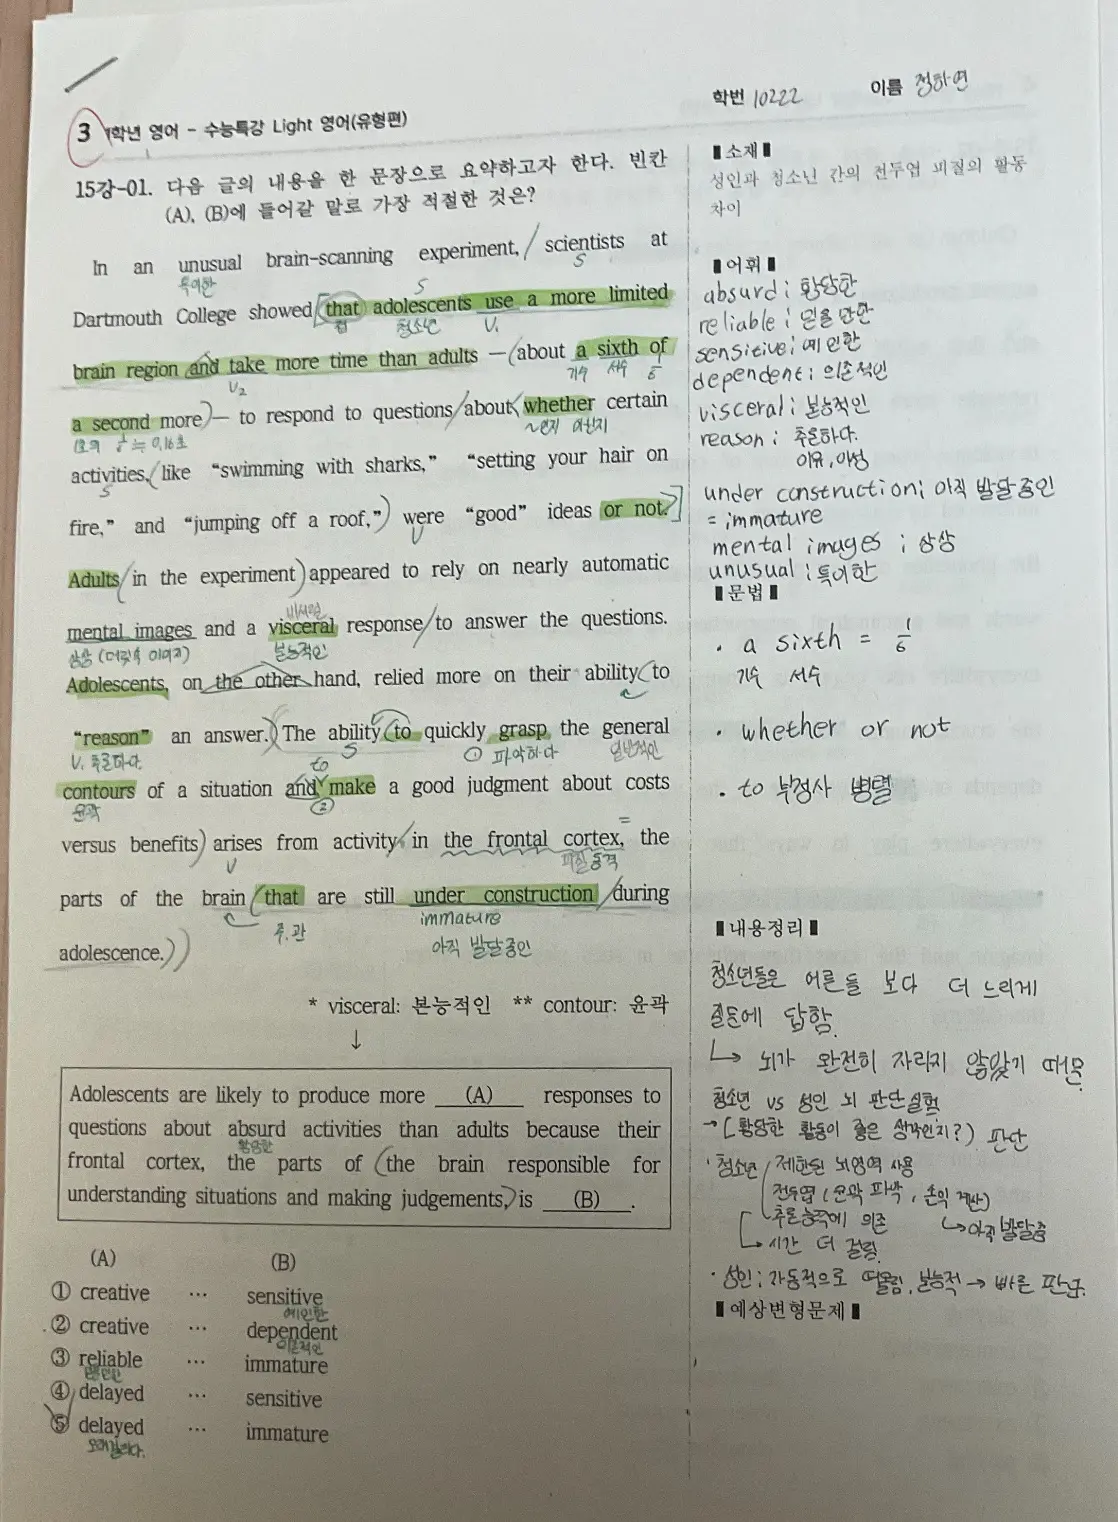 학번 10222 이름 정하연
3 1학년 영어 - 수능특강 Light 영어(유형편)
15강-01. 다음 글의 내용을 한 문장으로 요약하고자 한다. 빈칸
(A), (B)에 들어갈 말로 가장 적절한 것은?
In an unusual brain-scanning experiment, scientists at
특이한 S
S
Dartmouth College showed that adolescents use a more limited
접 청소년 V₁
brain region and take more time than adults — (about a sixth of
V₂ 기수 서수 1/6
a second more) — to respond to questions about whether certain
≒ 0.16초 ~인지 아닌지
activities, like “swimming with sharks,” “setting your hair on
S
fire,” and “jumping off a roof,” were “good” ideas or not.
V
Adults in the experiment appeared to rely on nearly automatic
mental images and a visceral response to answer the questions.
상상 (머릿속 이미지) 본능적인
Adolescents, on the other hand, relied more on their ability to
“reason” an answer. The ability to quickly grasp the general
V. 추론하다. S ① 파악하다 일반적인
to
contours of a situation and make a good judgment about costs
윤곽 ②
versus benefits arises from activity in the frontal cortex, the
V
parts of the brain that are still under construction during
주.관 immature
아직 발달중인
adolescence.
* visceral: 본능적인 ** contour: 윤곽
↓
Adolescents are likely to produce more (A) responses to
questions about absurd activities than adults because their
황당한
frontal cortex, the parts of the brain responsible for
understanding situations and making judgements, is (B) .
(A) (B)
① creative ··· sensitive
예민한
② creative ··· dependent
의존적인
③ reliable ··· immature
믿을만한
④ delayed ··· sensitive
⑤ delayed ··· immature
오래걸리다.
▮소재▮
성인과 청소년 간의 전두엽 피질의 활동
차이
▮어휘▮
absurd ; 황당한
reliable ; 믿을 만한
sensitive ; 예민한
dependent ; 의존적인
visceral ; 본능적인
reason ; 추론하다.
이유, 이성
under construction ; 아직 발달중인
= immature
mental images ; 상상
unusual ; 특이한
▮문법▮
· a sixth = 1/6
기수 서수
· whether or not
· to 부정사 병렬
▮내용정리▮
청소년들은 어른들 보다 더 느리게
질문에 답함.
↳ 뇌가 완전히 자라지 않았기 때문
청소년 vs 성인 뇌 판단실험
→ [황당한 활동이 좋은 생각인지?) 판단
· 청소년 제한된 뇌영역 사용
전두엽 (윤곽 파악, 손익 계산)
추론능력에 의존 ↳ 아직 발달중
↳ 시간 더 걸림.
· 성인 ; 자동적으로 떠올림, 본능적 → 빠른 판단.
▮예상변형문제▮